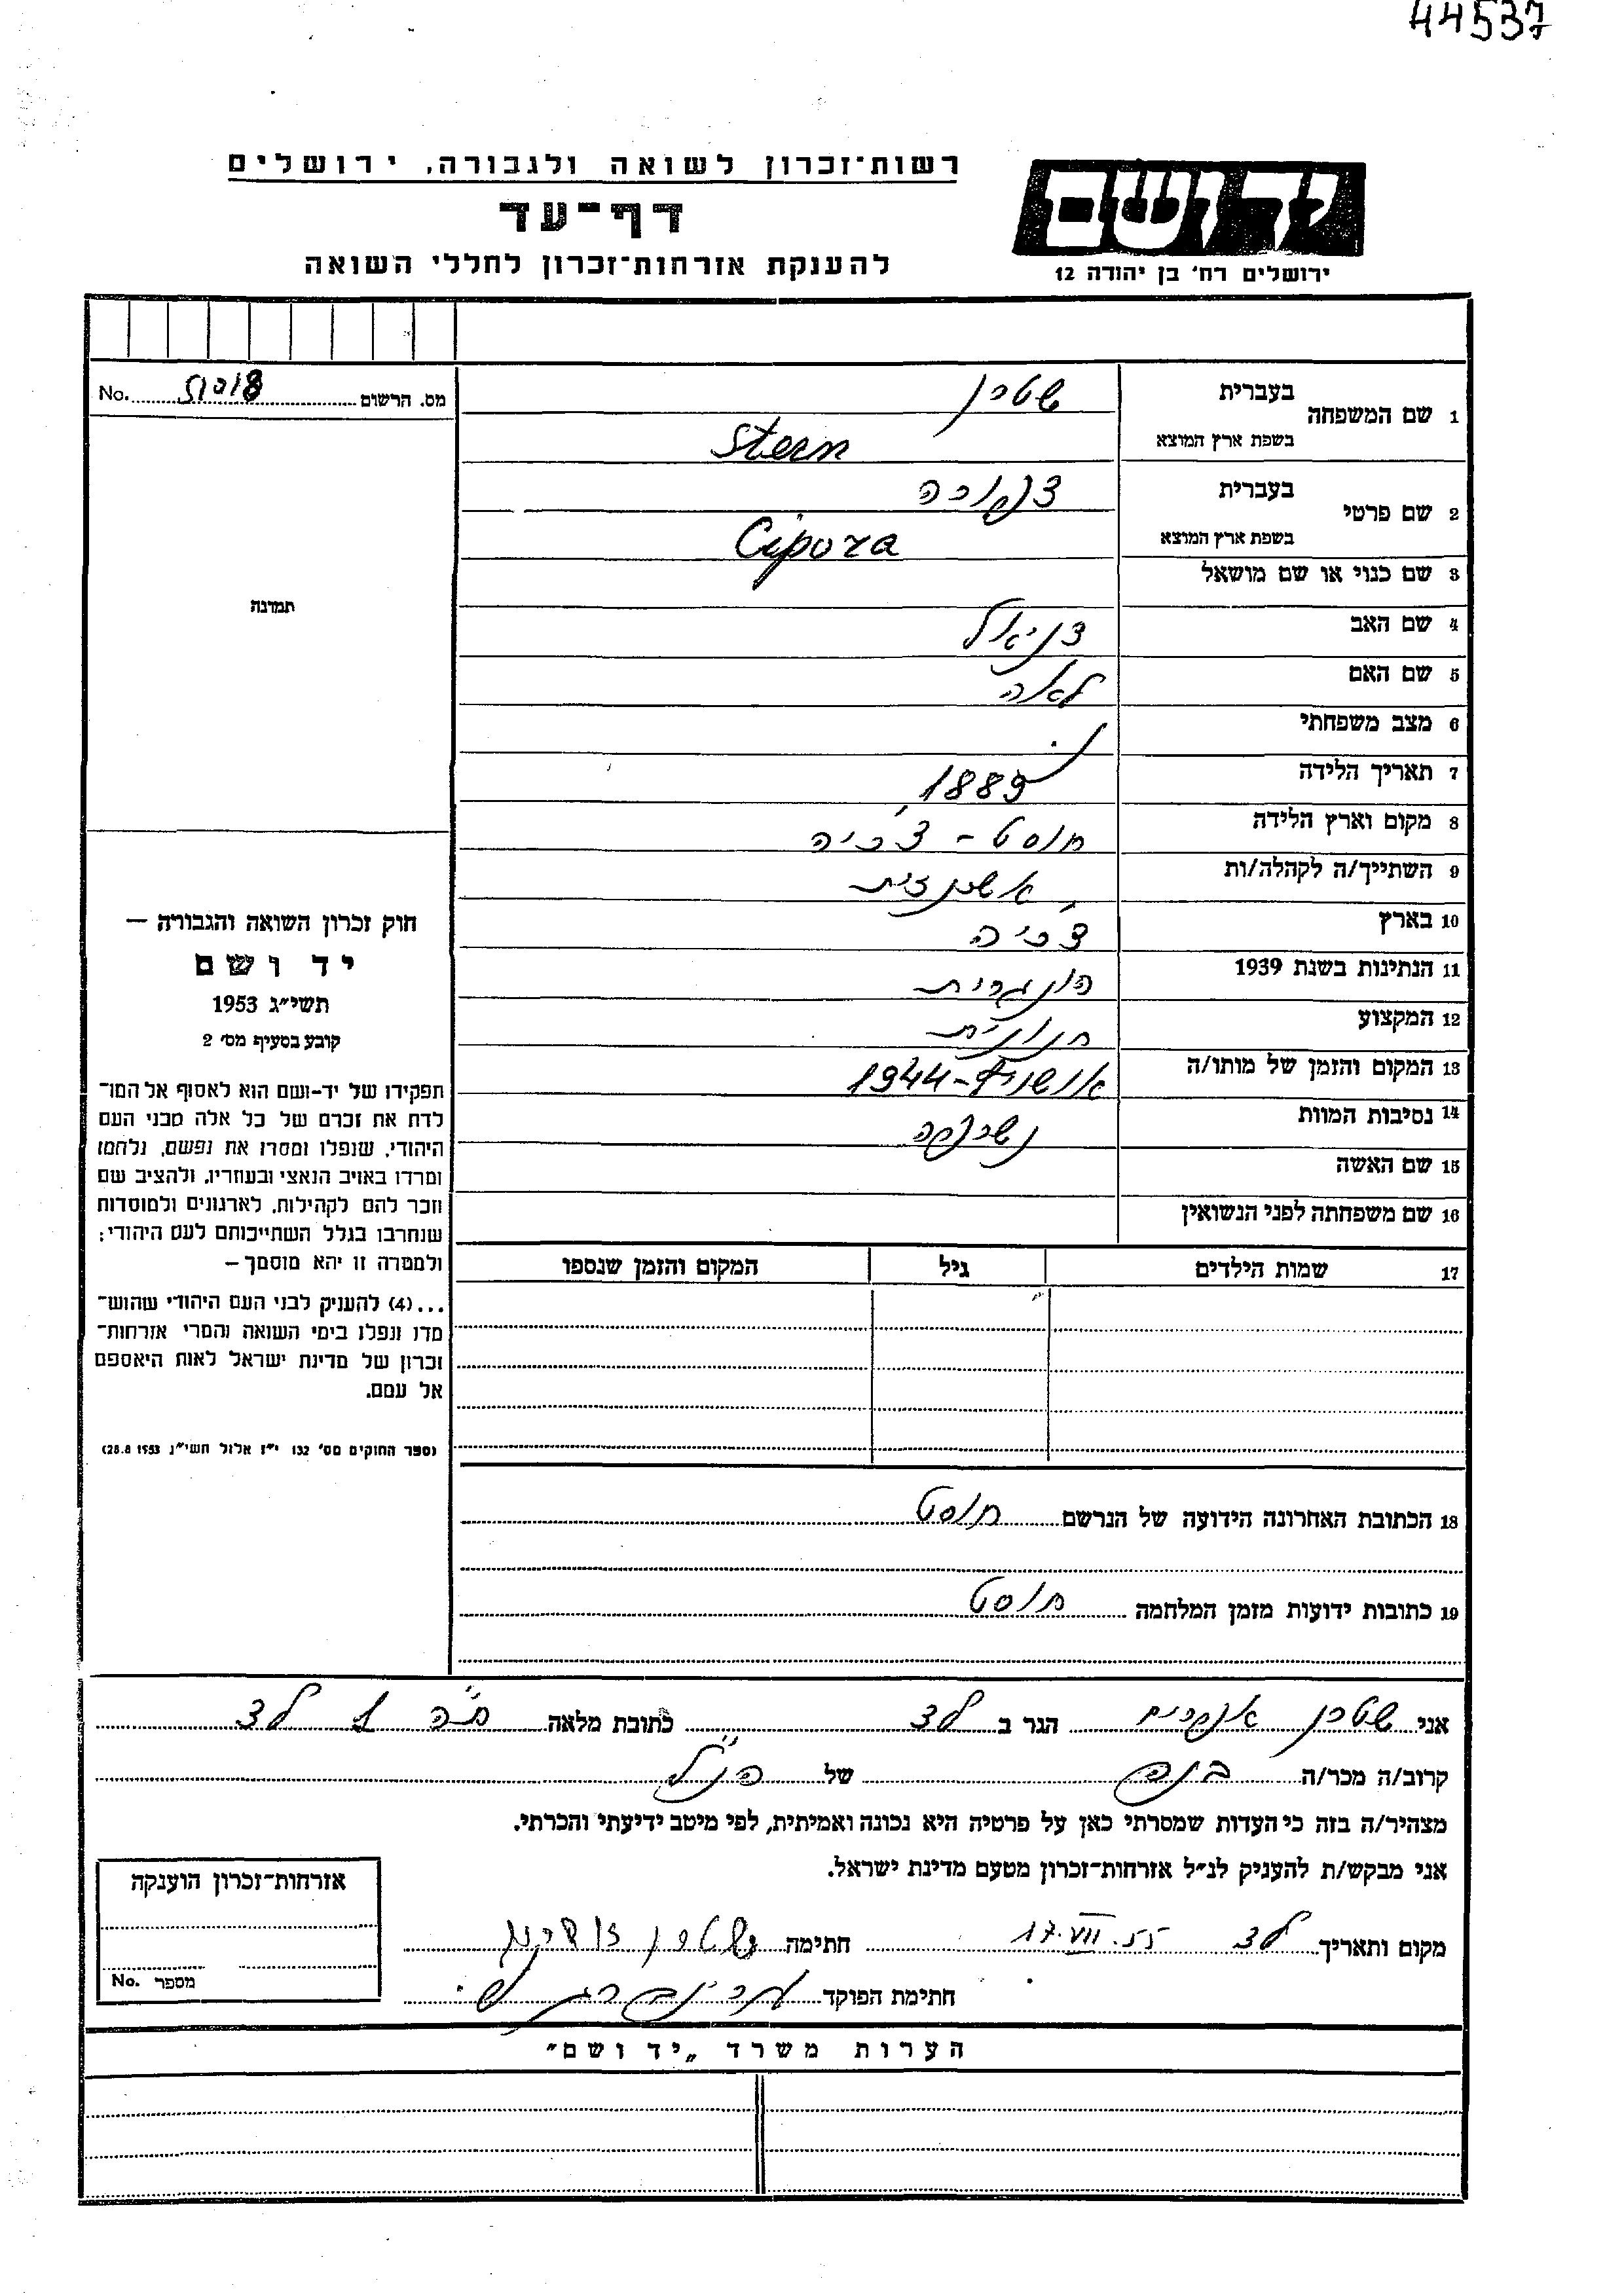 44537
רשות־זכרון לשואה ולגבורה, ירושלים
דף־עד
להענקת אזרחות־זכרון לחללי השואה
יד ושם
ירושלים רח' בן יהודה 12
מס. הרשום No.
1 שם המשפחה בעברית שטרן
בשפת ארץ המוצא Stern
2 שם פרטי בעברית צפורה
בשפת ארץ המוצא Cipora
3 שם כנוי או שם מושאל
4 שם האב דניאל
5 שם האם לאה
6 מצב משפחתי נ.
7 תאריך הלידה 1889
8 מקום וארץ הלידה חוסט - צ'כיה
9 השתייך/ה לקהלה/ות אשכנזית
10 בארץ צ'כיה
11 הנתינות בשנת 1939 הונגרית
12 המקצוע חנונית
13 המקום והזמן של מותו/ה אושויץ - 1944
14 נסיבות המוות נשרפה
15 שם האשה
16 שם משפחתה לפני הנשואין
17 שמות הילדים גיל המקום והזמן שנספו
תמונה
חוק זכרון השואה והגבורה –
יד ושם
תשי״ג 1953
קובע בסעיף מס׳ 2
תפקידו של יד-ושם הוא לאסוף אל המו־
לדת את זכרם של כל אלה מבני העם
היהודי, שנפלו ומסרו את נפשם, נלחמו
ומרדו באויב הנאצי ובעוזריו, ולהציב שם
וזכר להם לקהילות, לארגונים ולמוסדות
שנחרבו בגלל השתייכותם לעם היהודי;
ולמטרה זו יהא מוסמך –
...(4) להעניק לבני העם היהודי שהוש־
מדו ונפלו בימי השואה והמרי אזרחות־
זכרון של מדינת ישראל לאות היאספם
אל עמם.
(ספר החוקים מס׳ 132 י״ז אלול תשי״ג 28.8.1953)
18 הכתובת האחרונה הידועה של הנרשם חוסט
19 כתובות ידועות מזמן המלחמה חוסט
אני שטרן אפרים הגר ב לצ כתובת מלאה לצ
קרוב/ה מכר/ה בנה של הנ״ל
מצהיר/ה בזה כי העדות שמסרתי כאן על פרטיה היא נכונה ואמיתית, לפי מיטב ידיעתי והכרתי.
אני מבקש/ת להעניק לנ״ל אזרחות-זכרון מטעם מדינת ישראל.
מקום ותאריך לצ 17.VII.55 חתימה שטרן
חתימת הפוקד
אזרחות-זכרון הוענקה
מספר No.
הערות משרד „יד ושם״